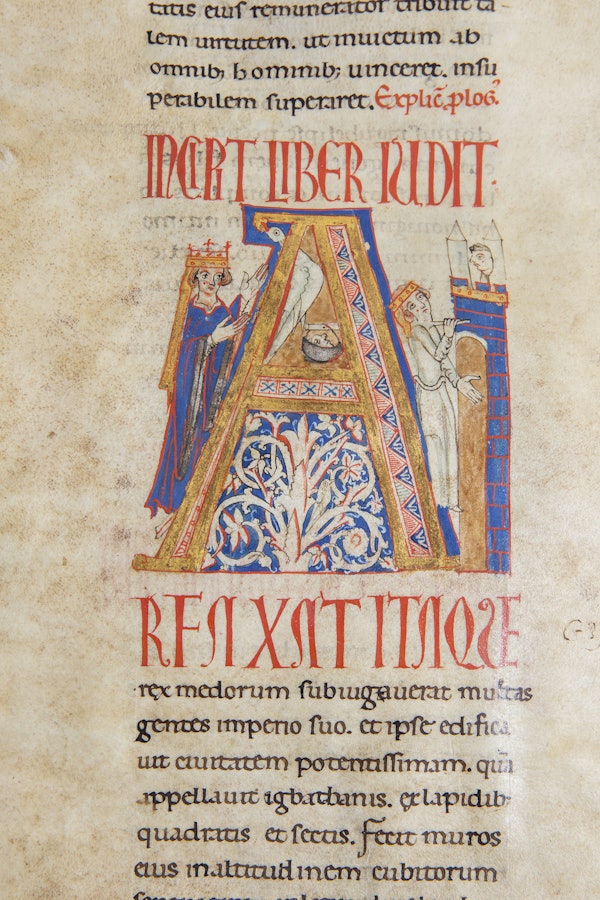 titis eius remunerator tribuit ta-
lem uirtutem. ut inuictum ab
omnib; hominib; uinceret. insu
perabilem superaret. Explic̄ plog̉.
INCIPIT LIBER IUDIT.
A
RFAXAT ITAQUE
rex medorum subiugauerat multas
gentes imperio suo. et ipse edifica
uit ciuitatem potentissimam. quā
appellauit igbathanis. ex lapidib;
quadratis et sectis. Fecit muros
eius in altitudinem cubitorum